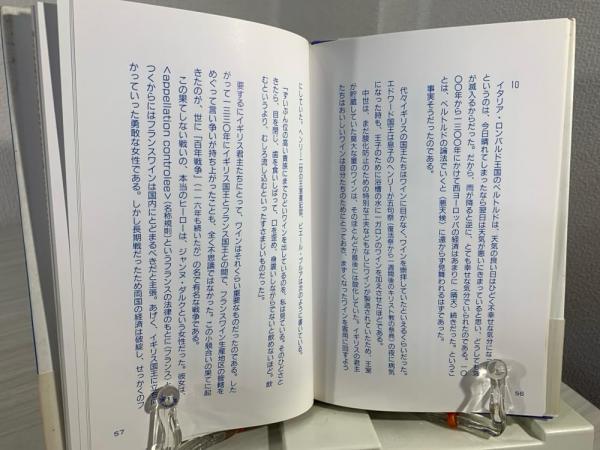 10
イタリア・ロンバルド王国のベルトルドは、天気の良い日はひどく不幸せな気分になった
というのは、今日晴れてしまったなら翌日は天気が悪いにきまっていると思い、どうしても気
が滅入るからだった。だから、雨が降ると逆に、とても幸せな気分でいられたのである。一〇
〇〇年から一三〇〇年にかけて西ヨーロッパの経済はあまりに〈晴天〉続きだった。というこ
とは、ベルトルドの論法でいくと〈悪天候〉に遠からず見舞われるはずであった。
事実そうだったのである。
代々イギリスの国王たちはワインに目がなく、ワインを崇拝していたといえるくらいだった。
エドワード国王は息子のヘンリーが五旬祭（復活祭から
になった時も、王子のために浴槽の水に一ガロンのワインを混入させたほどである。
中世は、まだ酸化防止のための特別な工夫などもなしにワインが製造されていたため、王室
が貯蔵していた莫大な量のワインは、そのほとんどが最後には酸化していた。イギリスの君主
たちはおいしいワインは自分たちのためにとっておき、まずくなったワインを客用に回すよう
56
にしていた。ヘンリー二世の王室書記官、ピエール・ブルアは次のように書いている。
「ずいぶん位の高い貴族にまでひどいワインを出しているのを、私は見ている。そのひどさと
きたら、目を閉じ、歯を食いしばって、口を歪め、身震いしながらでないと飲めないほど。飲
むというより、むしろ流し込むといったすさまじいものだった」。
要するにイギリス君主たちにとって、ワインはそれぐらい重要なものだったのである。した
がって一三三〇年にイギリス国王とフランス国王との間で、フランスワイン生産地区の管轄を
めぐって言い争いが持ち上がったことも、全く不思議ではなかった。この小競合いの果てに起
きたのが、世に「百年戦争」（一一六年も続いたが）の名で有名な戦争である。
この果てしない戦いの、本当のヒーローは、ジャンヌ・ダルクという女性だった。彼女は、
<appellation controlee>〈名称規制〉というフランスの法律のもとに〈フランス〉と
つくからにはフランスワインは国内にとどまるべきだと主張。あげく、イギリス国王に立ち向
かっていった勇敢な女性である。しかし長期戦だったため両国の経済は破綻し、せっかくのフ
57